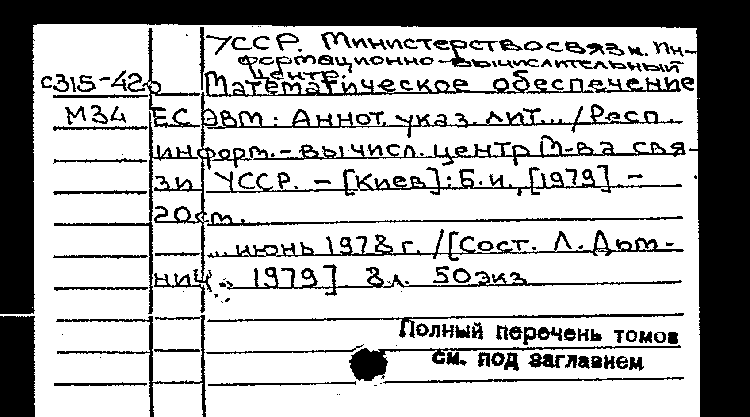 УССР. Министерство связи. Ин-
формационно-вычислительный
центр.
с315-42б Математическое обеспечение
М34 ЕС ЭВМ: Аннот. указ. лит... / Респ.
информ.-вычисл. центр М-ва свя-
зи УССР. - [Киев]: Б.и., [1979] -
20см.
... июнь 1978 г. / [Сост. Л. Дым-
нич. 1979] 8 л. 50 экз
Полный перечень томов
см. под заглавием